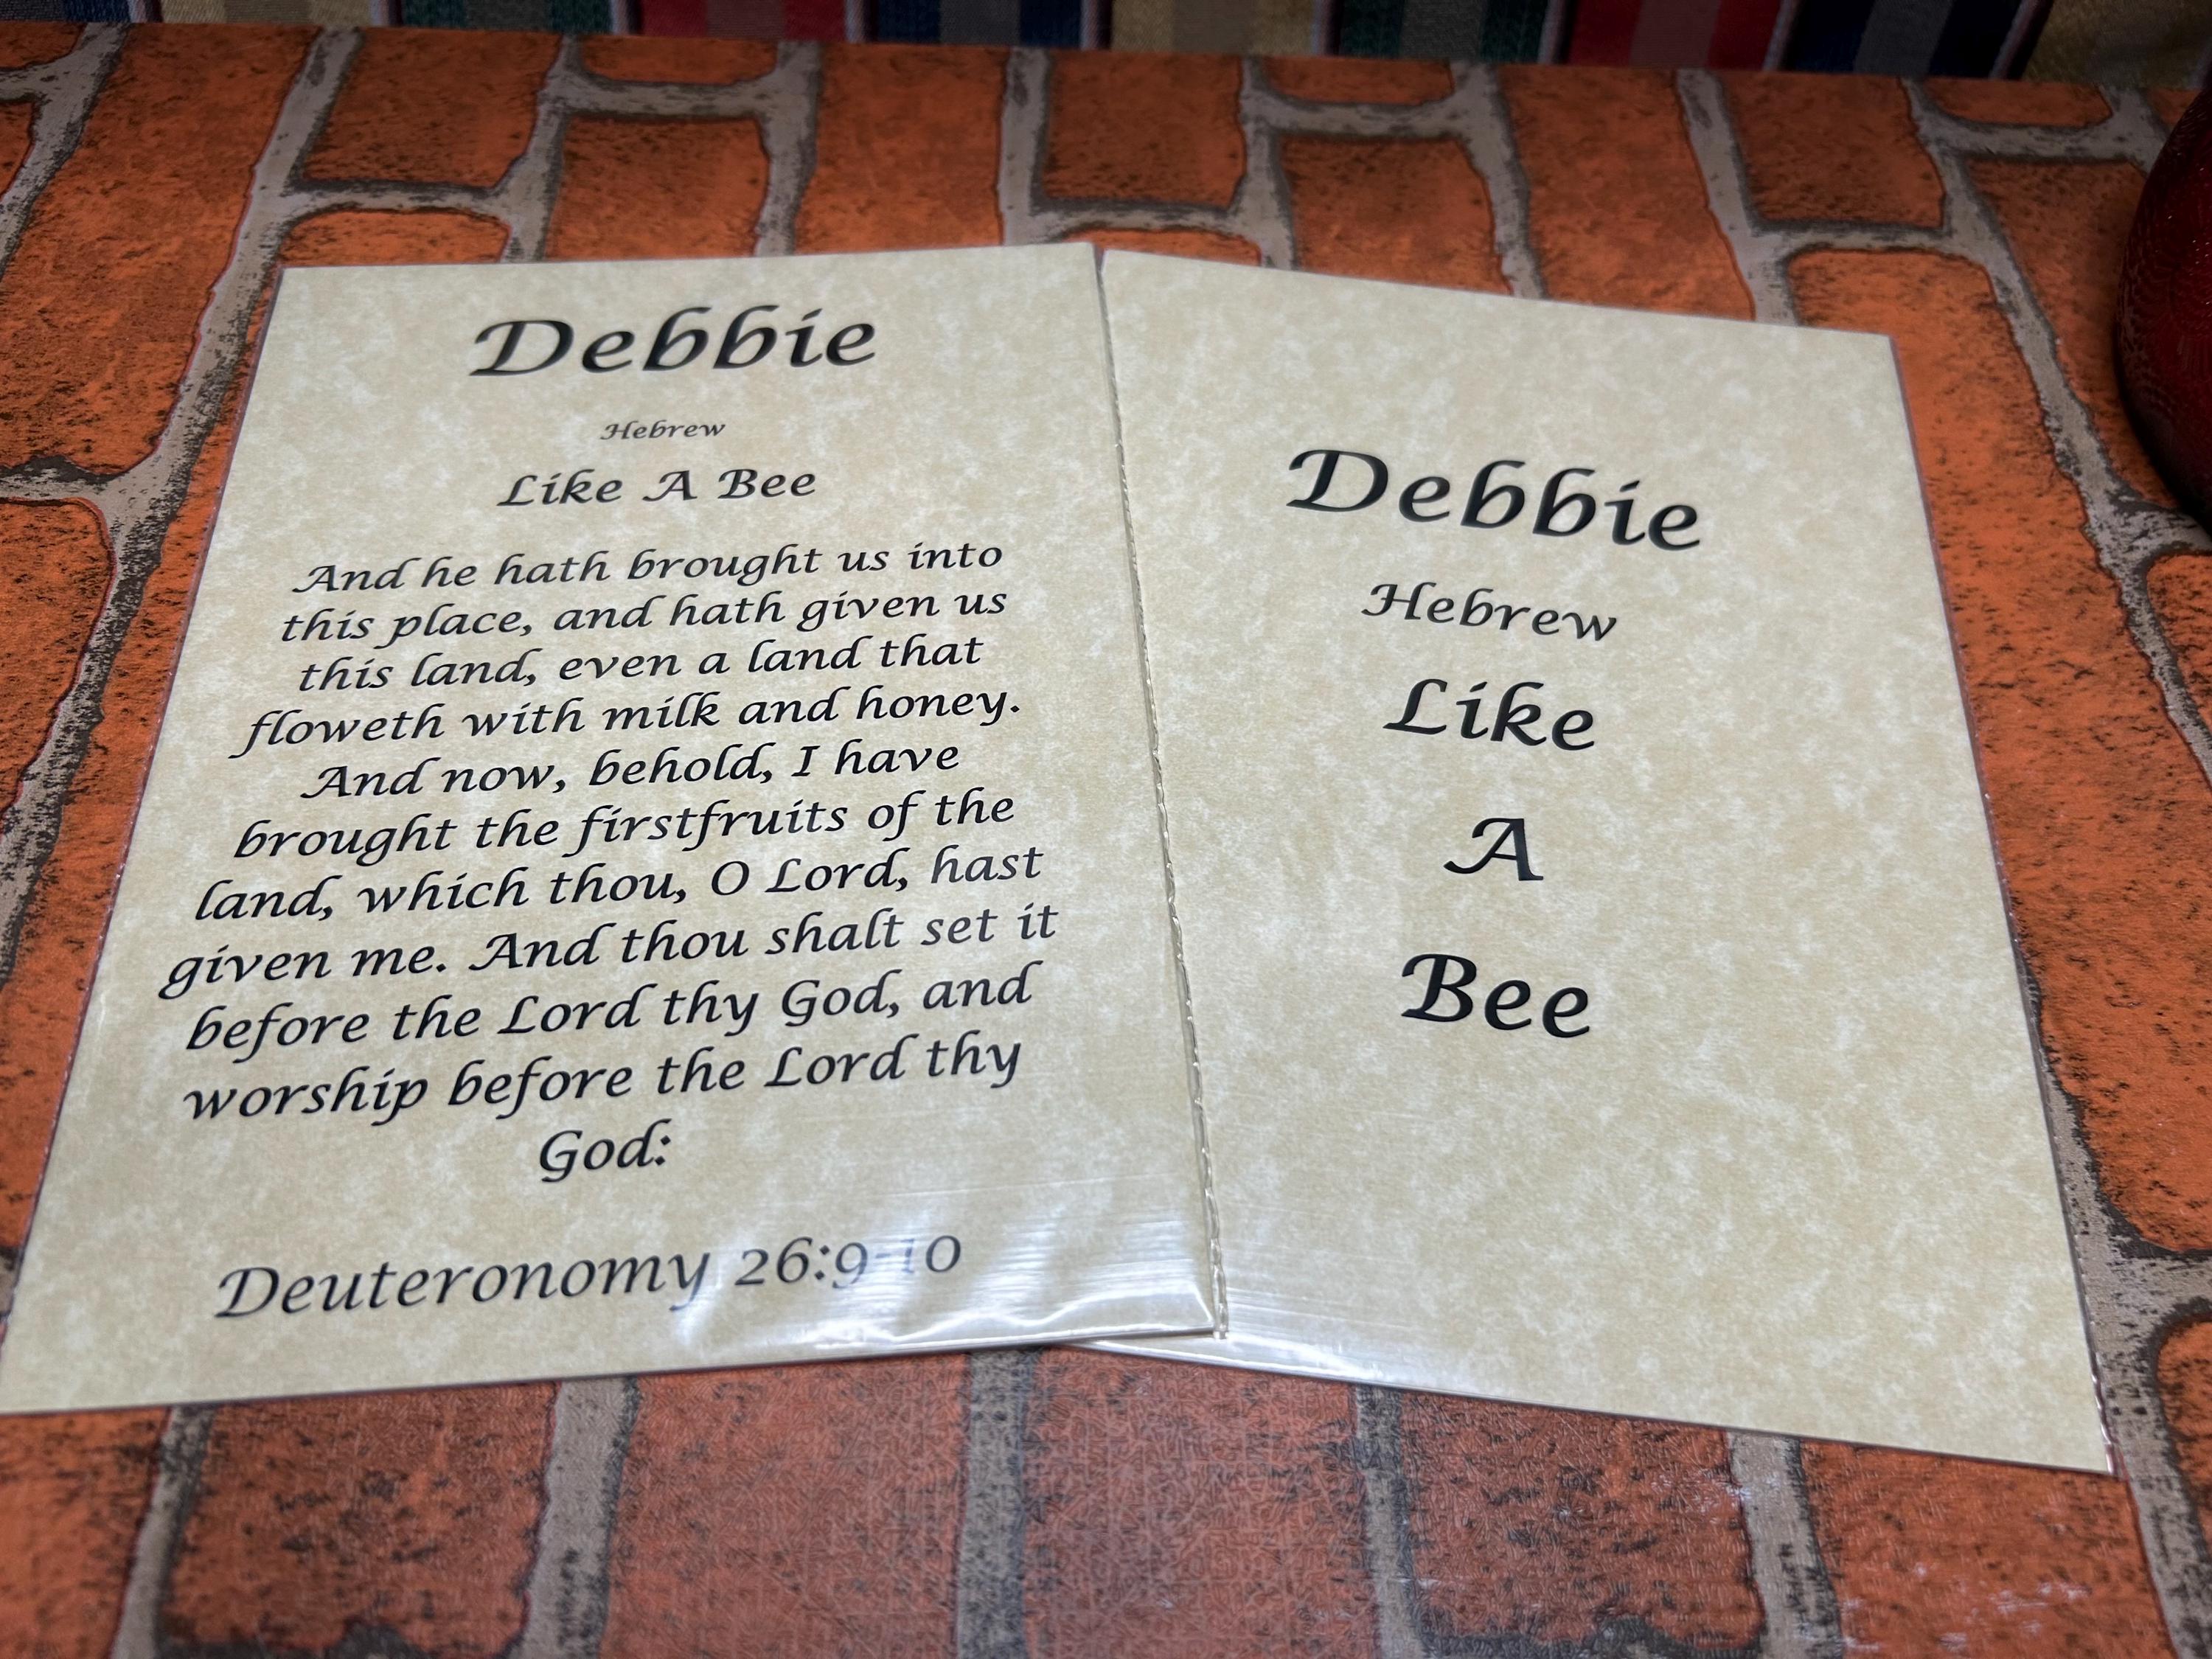 Debbie
Hebrew
Like A Bee
And he hath brought us into
this place, and hath given us
this land, even a land that
floweth with milk and honey.
And now, behold, I have
brought the firstfruits of the
land, which thou, O Lord, hast
given me. And thou shalt set it
before the Lord thy God, and
worship before the Lord thy
God:
Deuteronomy 26:9-10
Debbie
Hebrew
Like
A
Bee